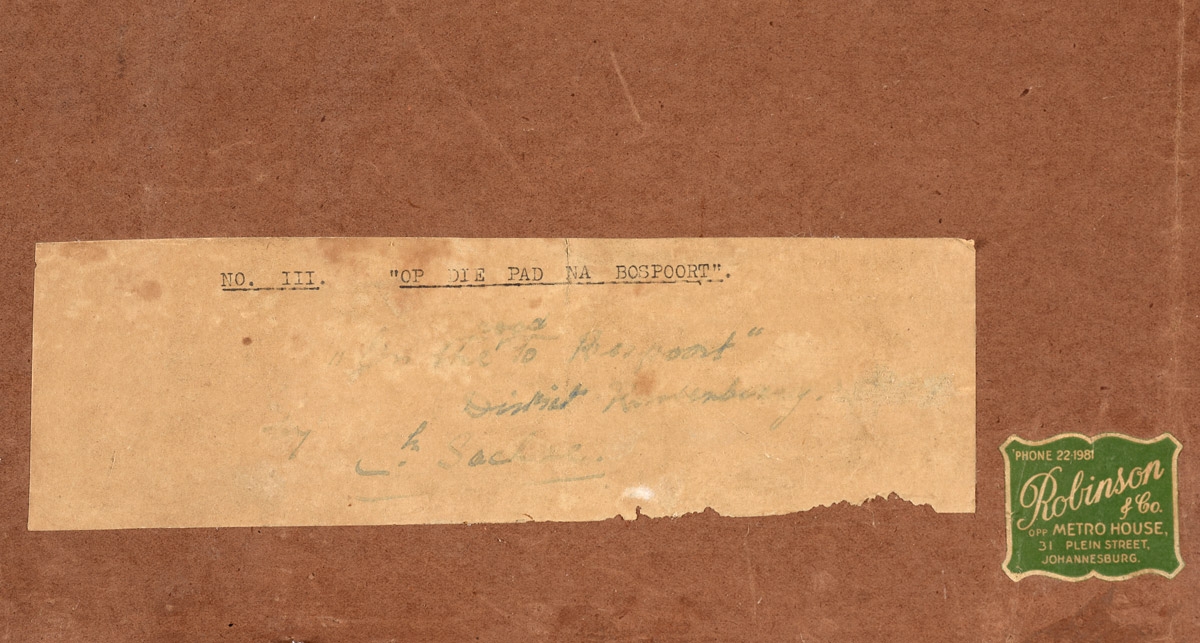 NO. III. "OP DIE PAD NA BOSPOORT".
road
"On the to Bospoort"
District
by
PHONE 22-1981
Robinson
& Co.
OPP METRO HOUSE,
31 PLEIN STREET,
JOHANNESBURG.